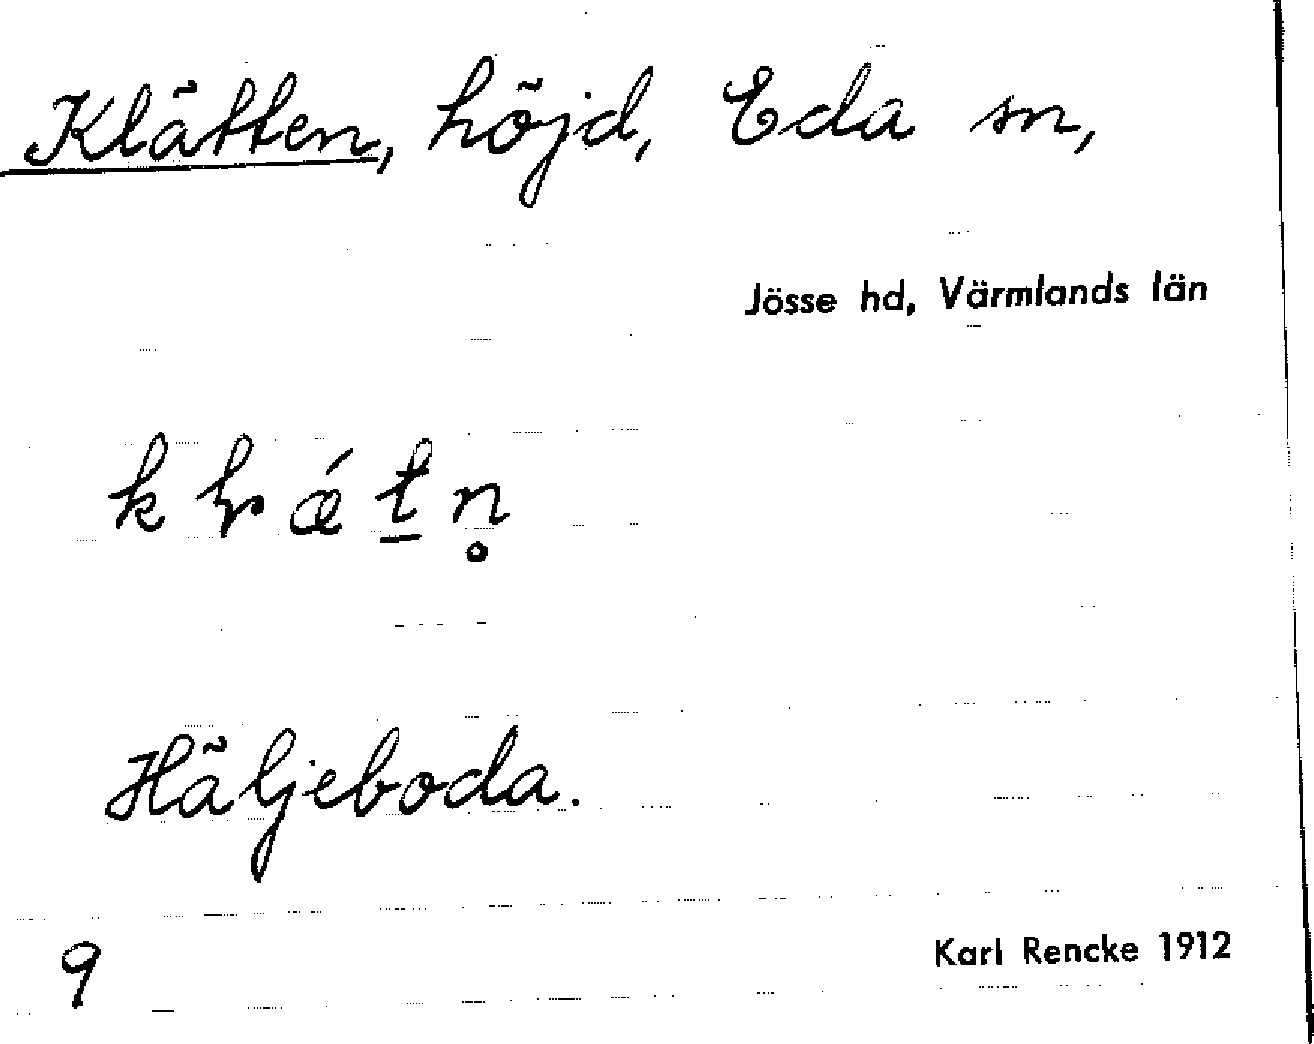 Klätten, höjd, Eda sn,
Jösse hd, Värmlands län
Häljeboda.
9
Karl Rencke 1912